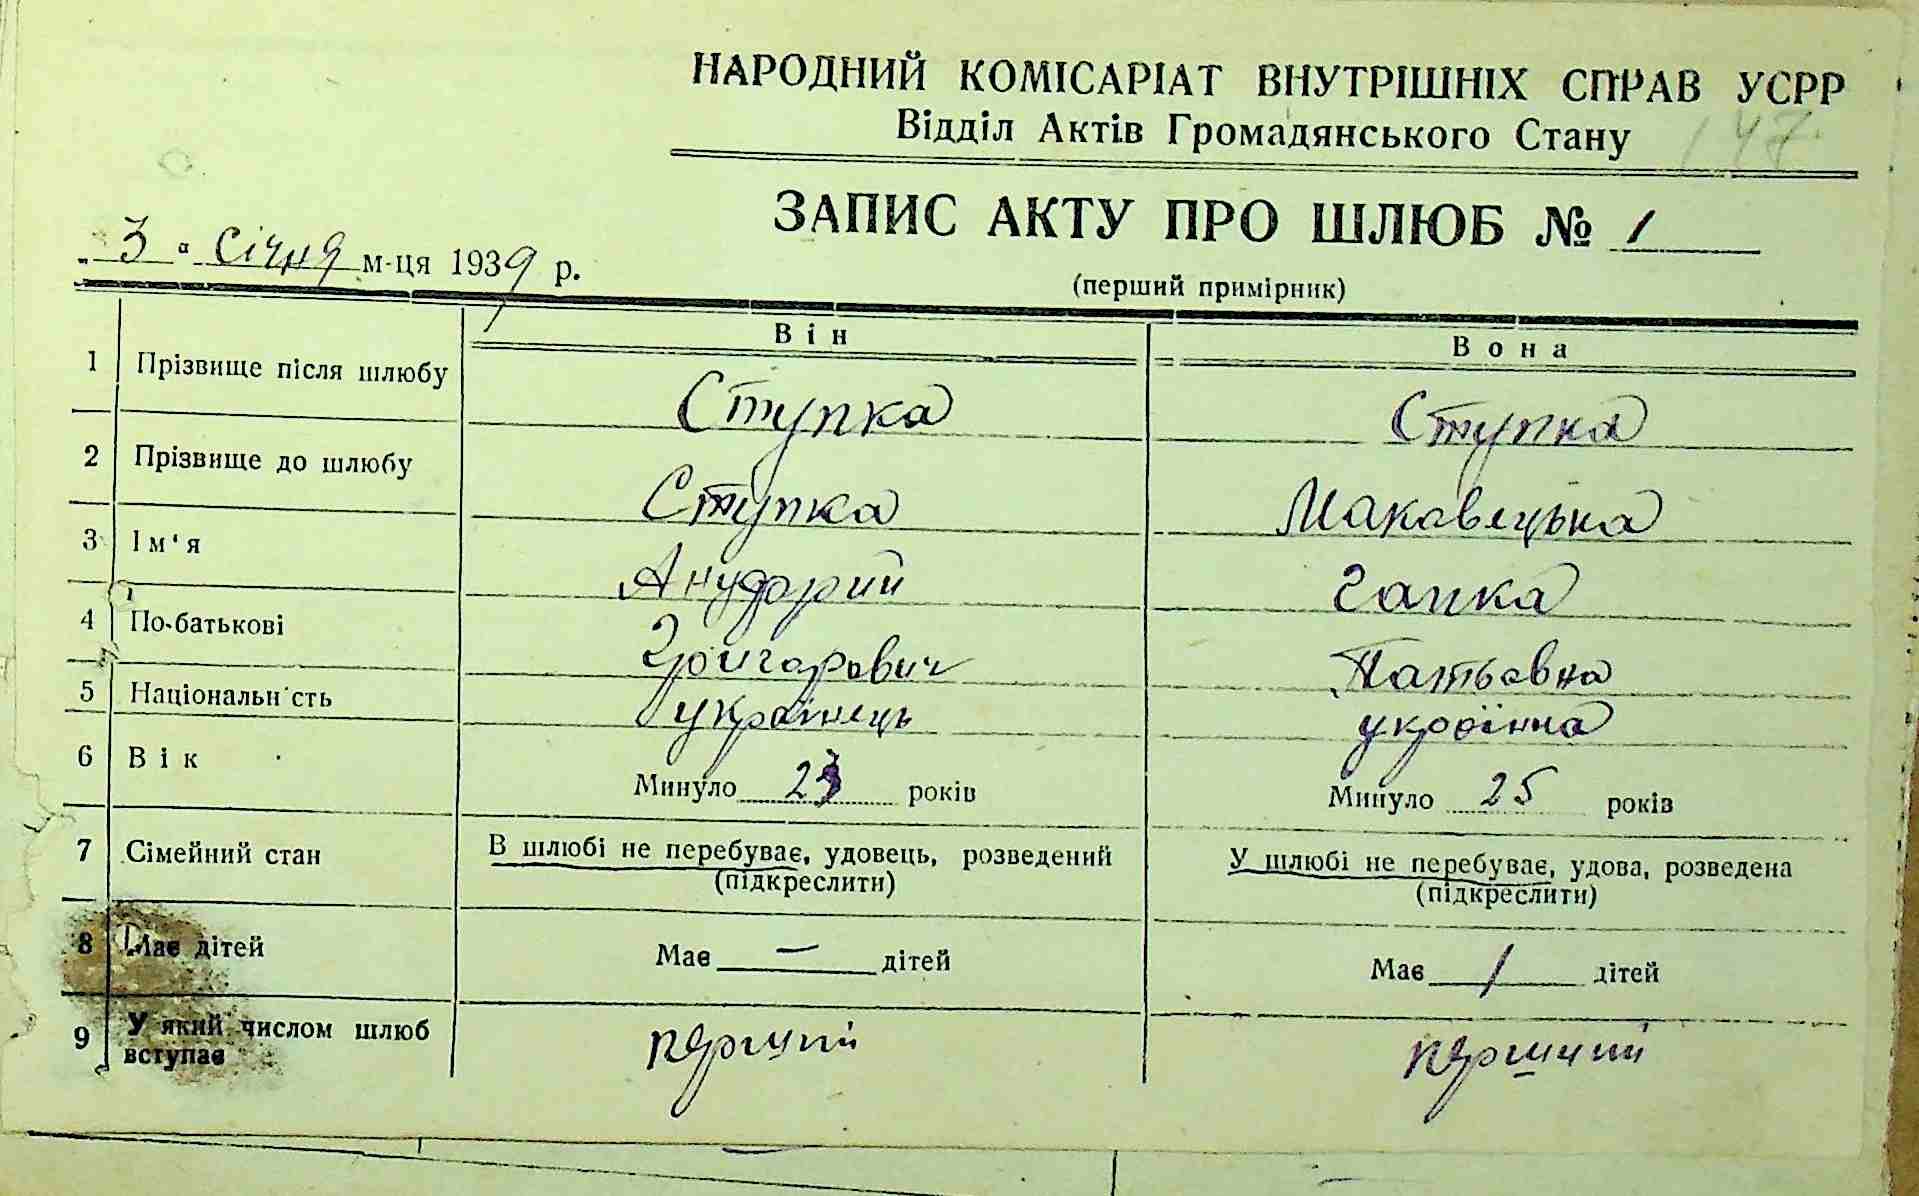 НАРОДНИЙ КОМІСАРІАТ ВНУТРІШНІХ СПРАВ УСРР
Відділ Актів Громадянського Стану
147
ЗАПИС АКТУ ПРО ШЛЮБ № 1
„ 3 “ січня м-ця 1939 р.
(перший примірник)
Він Вона
1 Прізвище після шлюбу Ступка Ступка
2 Прізвище до шлюбу Ступка Макавецька
3 Ім'я Гапка
4 По-батькові
5 Національність українець українна
6 Вік Минуло 23 років Минуло 25 років
7 Сімейний стан В шлюбі не перебуває, удовець, розведений У шлюбі не перебуває, удова, розведена
(підкреслити) (підкреслити)
8 Має дітей Має — дітей Має 1 дітей
9 У який числом шлюб перший перший
вступає